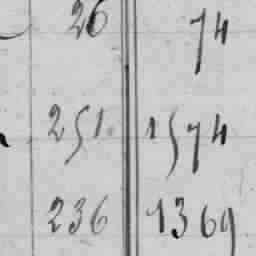 26 74
251 1574
236 1369